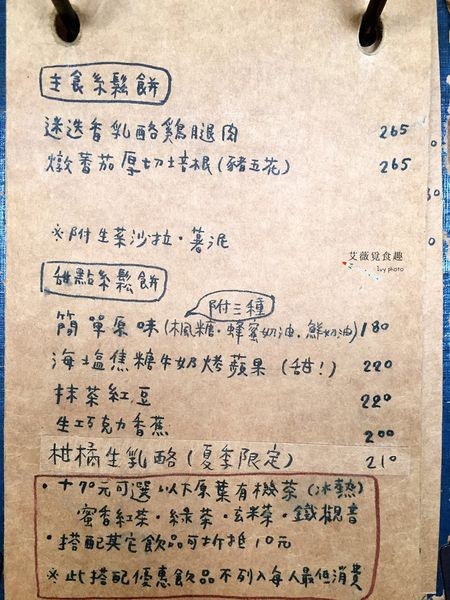 主食系鬆餅
迷迭香乳酪雞腿肉 265
燉蕃茄厚切培根(豬五花) 265
※附生菜沙拉・薯泥
艾薇覓食趣
Ivy photo
甜點系鬆餅
附三種
簡單原味(楓糖・蜂蜜奶油・鮮奶油) 180
海塩焦糖牛奶烤蘋果(甜!) 220
抹茶紅豆 220
生巧克力香蕉 200
柑橘生乳酪(夏季限定) 210
・+70元可選以下原葉有機茶(冰熱)
蜜香紅茶・綠茶・玄米茶・鐵觀音
・搭配其它飲品可折抵10元
※此搭配優惠飲品不列入每人最低消費